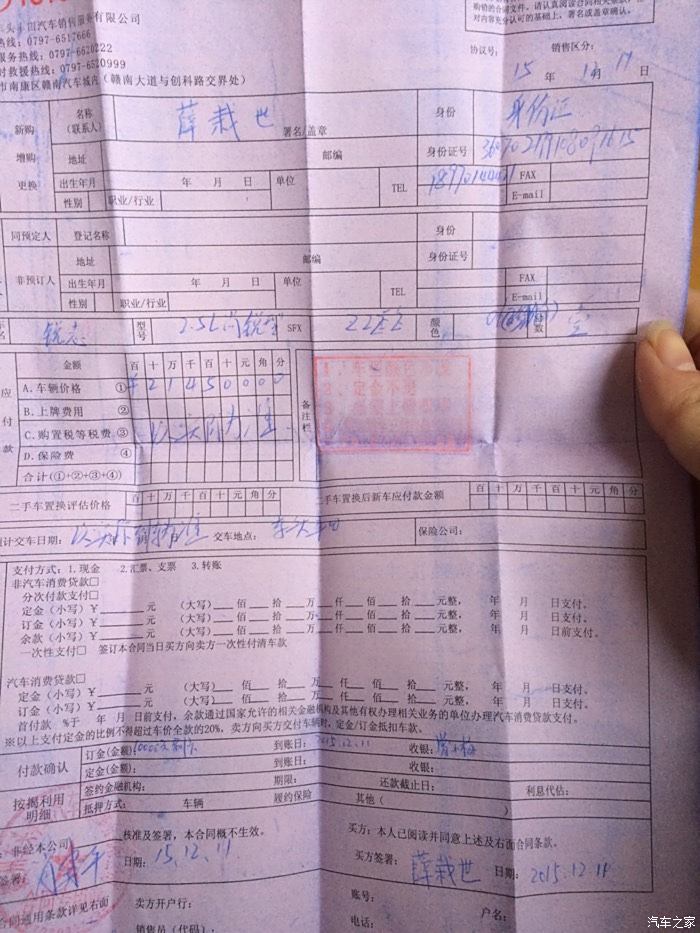 汽车销售服务有限公司
热线: 0797-6517666
服务热线: 0797-6520222
时救援热线: 0797-6520999
市南康区赣南汽车城内(赣南大道与创科路交界处)
购销的合同文件,请认真阅读合同相关条款,在
对内容充分认可的基础上,签名或盖章确认。
协议号: 销售区分:
15 年 12 月 11 日
新购 增购 更换
名称(联系人) 薛栽世 署名/盖章 身份 身份证
地址 邮编 身份证号
出生年月 年 月 日 单位 TEL FAX
性别 职业/行业 E-mail
同预定人 登记名称 身份
非预订人 地址 邮编 身份证号
出生年月 年 月 日 单位 TEL FAX
性别 职业/行业 E-mail
名 锐志 型号 2.5L SFX 颜色 台数 壹
金额 百 十 万 千 百 十 元 角 分
应付款 备注栏
A.车辆价格 ① ¥21450000
B.上牌费用 ②
C.购置税等税费 ③ 以实际为准
D.保险费 ④
合计(①+②+③+④)
定金不退
二手车置换评估价格 百 十 万 千 百 十 元 角 分 二手车置换后新车应付款金额 百 十 万 千 百 十 元 角 分
预计交车日期: 交车地点: 保险公司:
支付方式: 1.现金 2.汇票、支票 3.转账
非汽车消费贷款□
分次付款支付□
定金(小写)¥ 元 (大写) 佰 拾 万 仟 佰 拾 元整, 年 月 日支付。
订金(小写)¥ 元 (大写) 佰 拾 万 仟 佰 拾 元整, 年 月 日支付。
余款(小写)¥ 元 (大写) 佰 拾 万 仟 佰 拾 元整, 年 月 日前支付。
一次性支付□ 签订本合同当日买方向卖方一次性付清车款
汽车消费贷款□
定金(小写)¥ 元 (大写) 佰 拾 万 仟 佰 拾 元整, 年 月 日支付。
订金(小写)¥ 元 (大写) 佰 拾 万 仟 佰 拾 元整, 年 月 日支付。
首付款 %于 年 月 日前支付,余款通过国家允许的相关金融机构及其他有权办理相关业务的单位办理汽车消费贷款支付。
※以上支付定金的比例不得超过车价全款的20%,卖方向买方交付车辆时,定金/订金抵扣车款。
付款确认 订金(金额) 到账日: 2015.12.11 收银:
定金(金额): 到账日: 收银:
按揭利用明细 签约金融机构: 期限: 还款截止日: 利息代估:
抵押方式: 车辆 履约保险 其他( )
:非经本公司 核准及签署,本合同概不生效。 买方:本人已阅读并同意上述及右面合同条款。
签署: 日期: 15.12.11 买方签署: 薛栽世 日期: 2015.12.11
合同通用条款详见右面 卖方开户行: 账号: 户名:
销售员(代码): 电话:
汽车之家